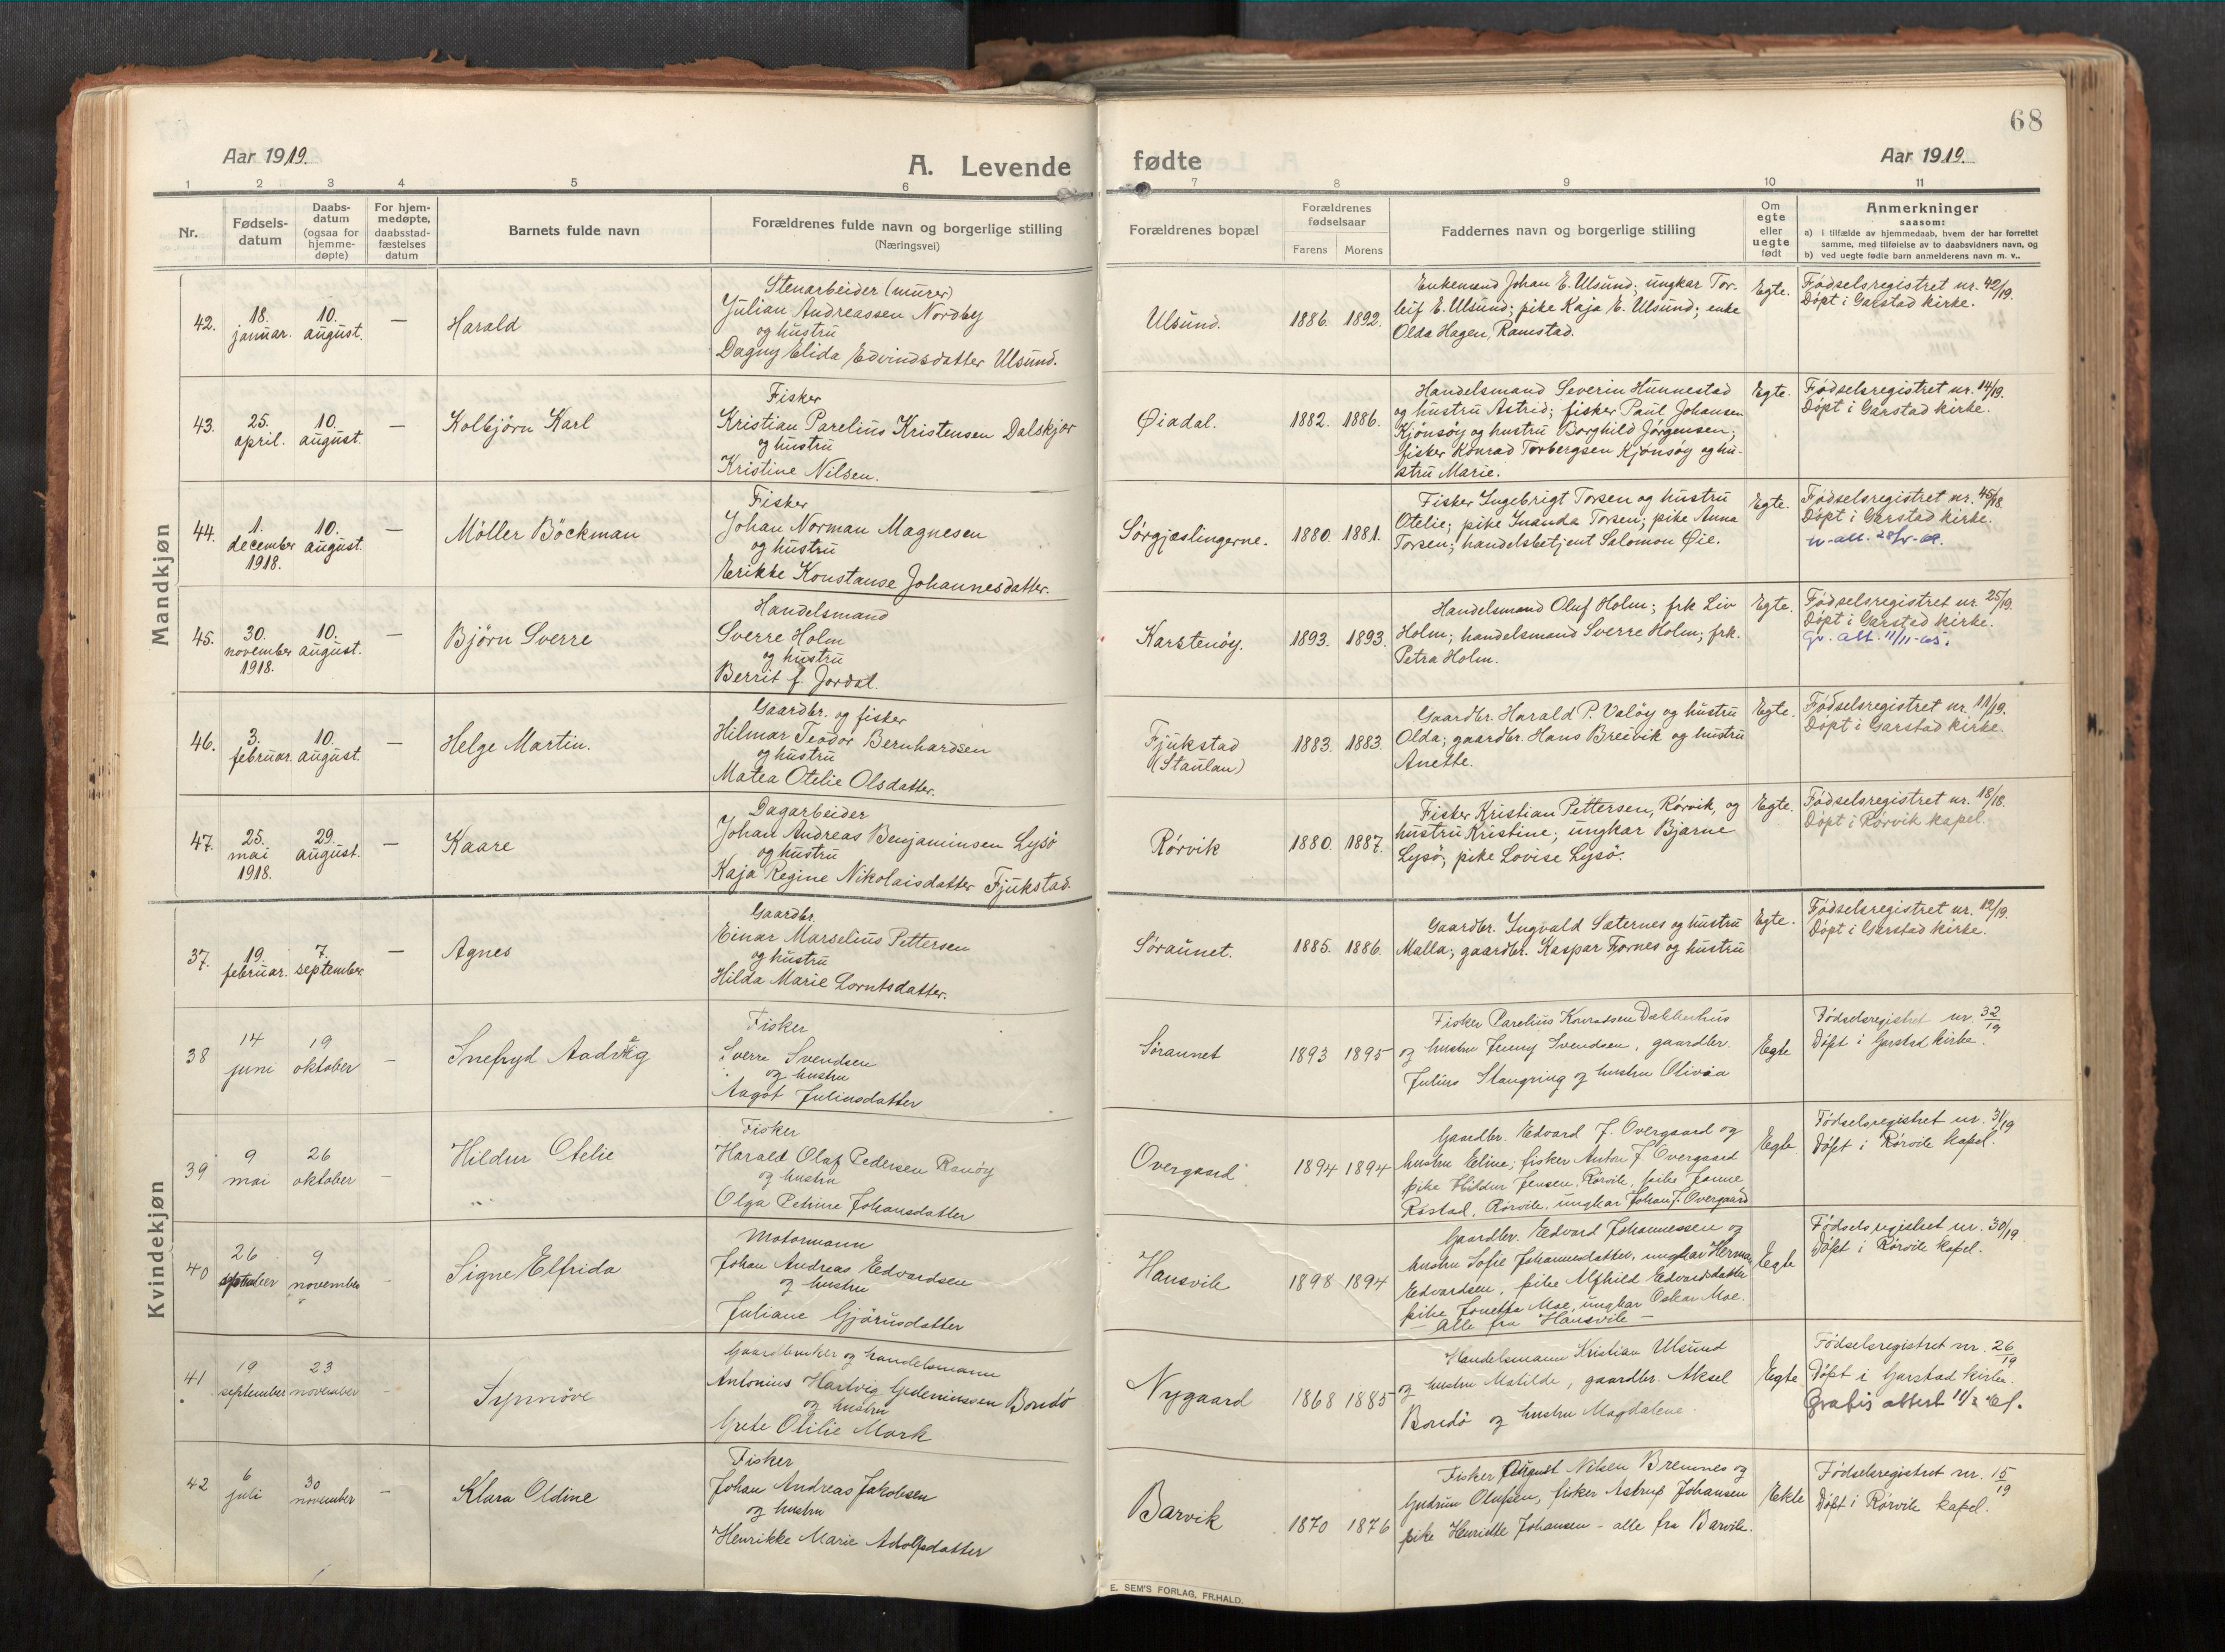 68
Aar 1919.
A. Levende
fødte
Aar 1919.
1 2 3 4 5 6 7 8 9 10 11
Nr.
Fødsels-
datum
Daabs-
datum
(ogsaa for
hjemme-
døpte)
For hjem-
medøpte,
daabsstad-
fæstelses
datum
Barnets fulde navn
Forældrenes fulde navn og borgerlige stilling
(Næringsvei)
Forældrenes bopæl
Forældrenes
fødselsaar
Farens Morens
Faddernes navn og borgerlige stilling
Om
egte
eller
uegte
født
Anmerkninger
saasom:
a) i tilfælde av hjemmedaab, hvem der har forrettet
samme, med tilføielse av to daabsvidners navn, og
b) ved uegte fødte barn anmelderens navn m. v..
Mandkjøn
42.
18.
januar.
10.
august.
—
Harald
Stenarbeider (murer)
Julian Andreassen Nordby
og hustru
Dagny Elida Edvindsdatter Ulsund.
Ulsund.
1886. 1892.
Enkemand Johan E. Ulsund; ungkar Tor-
leif E. Ulsund; pike Kaja E. Ulsund; enke
Olda Hagen, Ramstad.
Egte.
Fødselsregistret nr. 42/19.
Døpt i Garstad kirke.
43.
25.
april.
10.
august.
—
Kolbjörn Karl
Fisker
Kristian Parelius Kristensen Dalskjær
og hustru
Kristine Nilsen.
Øiadal.
1882. 1886.
Handelsmand Severin Hunnestad
og hustru Astrid; fisker Paul Johansen
Kjönsöy og hustru Borghild Jørgensen;
fisker Konrad Torbergsen Kjönsöy og hu-
stru Marie.
Egte.
Fødselsregistret nr. 14/19.
Døpt i Garstad kirke.
44.
1.
december
1918.
10.
august.
—
Möller Böckman
Fisker
Johan Norman Magnesen
og hustru
Erikke Konstanse Johannesdatter.
Sørgjæslingerne.
1880. 1881.
Fisker Ingebrigt Torsen og hustru
Otelie; pike Inanda Torsen; pike Anna
Torsen; handelsbetjent Salomon Øie.
Egte.
Fødselsregistret nr. 45/18.
Døpt i Garstad kirke.
45.
30.
november
1918.
10.
august.
—
Björn Sverre
Handelsmand
Sverre Holm
og hustru
Berrit f. Jordal.
Karstenøy.
1893. 1893.
Handelsmand Oluf Holm; frk Liv
Holm; handelsmand Sverre Holm; frk.
Petra Holm.
Egte.
Fødselsregistret nr. 25/19.
Døpt i Garstad kirke.
Gr. att. 11/11-65.
46.
3.
februar.
10.
august.
—
Helge Martin.
Gaardbr. og fisker
Hilmar Teodor Bernhardsen
og hustru
Matea Otelie Olsdatter.
Fjukstad
(Staulan)
1883. 1883.
Gaardbr. Harald P. Valöy og hustru
Olda; gaardbr. Hans Breivik og hustru
Anette.
Egte.
Fødselsregistret nr. 11/19.
Døpt i Garstad kirke.
47.
25.
mai
1918.
29.
august.
—
Kaare
Dagarbeider
Johan Andreas Benjaminsen Lysö
og hustru
Kaja Regine Nikolaisdatter Fjukstad.
Rørvik
1880. 1887.
Fisker Kristian Pettersen, Rørvik, og
hustru Kristine; ungkar Bjarne
Lysö; pike Lovise Lysö.
Egte.
Fødselsregistret nr. 18/18.
Døpt i Rørvik kapel.
Kvindekjøn
37.
19.
februar.
7.
september
—
Agnes
Gaardbr.
Einar Marselius Pettersen
og hustru
Hilda Marie Lorntsdatter.
Söraunet.
1885. 1886.
Gaardbr. Ingvald Sæternes og hustru
Malla; gaardbr. Kaspar Fornes og hustru
Egte.
Fødselsregistret nr. 12/19.
Döpt i Garstad kirke.
38
14
juni
19
oktober
-
Snefryd
Fisker
Sverre Svendsen
og hustru
Aagot Juliusdatter
Söraunet
1893 1895
Fisker Parelius Konradsen Dekkerhus
og hustru Jenny Svendsen, gaardbr.
Julius Stangring og hustru Olivia
Egte
Födselsregistret nr. 32/19
Döpt i Garstad kirke.
39
9
mai
26
oktober
-
Hildur Otelie
Fisker
Harald Olaf Pedersen Ranöy
og hustru
Olga Petrine Johansdatter
Overgaard
1894 1894
Gaardbr. Edvard J. Overgaard og
hustru Eline; fisker Anton J. Overgaard
pike Hildur Jensen, Rörvik, pike Janne
Rostad, Rörvik, ungkar Johan J. Overgaard
Egte
Födselsregistret nr. 31/19
Döpt i Rörvik kapel.
40
26
september
9
november
-
Signe Elfrida
Motormann
Johan Andreas Edvardsen
og hustru
Juliane Gjörusdatter
Hansvik
1898 1894
Gaardbr. Edvard Johannessen og
hustru Sofie Johannesdatter, ungkar Herman
Edvardsen, pike Alfhild Edvardsdatter
pike Jonetta Moe, ungkar Oskar Moe.
— Alle fra Hansvik —
Egte
Födselsregistret nr. 30/19
Döpt i Rörvik kapel.
41
19
september
23
november
-
Synnöve
Gaardbruker og handelsmann
Antonius Hartvig Gedeniussen Bondö
og hustru
Grete Otilie Mork
Nygaard
1868 1885
Handelsmann Kristian Ulsund
og hustru Matilde, gaardbr. Aksel
Bondö og hustru Magdalene.
Egte
Födselsregistret nr. 26/19
Döpt i Garstad kirke.
Gratis attest
42
6
juli
30
november
-
Klara Oldine
Fisker
Johan Andreas Jakobsen
og hustru
Henrikke Marie Adolfsdatter
Barvik
1870 1876
Fisker August Nilsen Bremnes og
Gudrun Olufsen, fisker Astrup Johansen
pike Henriette Johansen - alle fra Barvik.
Ekte
Födselsregistret nr. 15/19
Döpt i Rörvik kapel.
E. SEM'S FORLAG, FR.HALD.